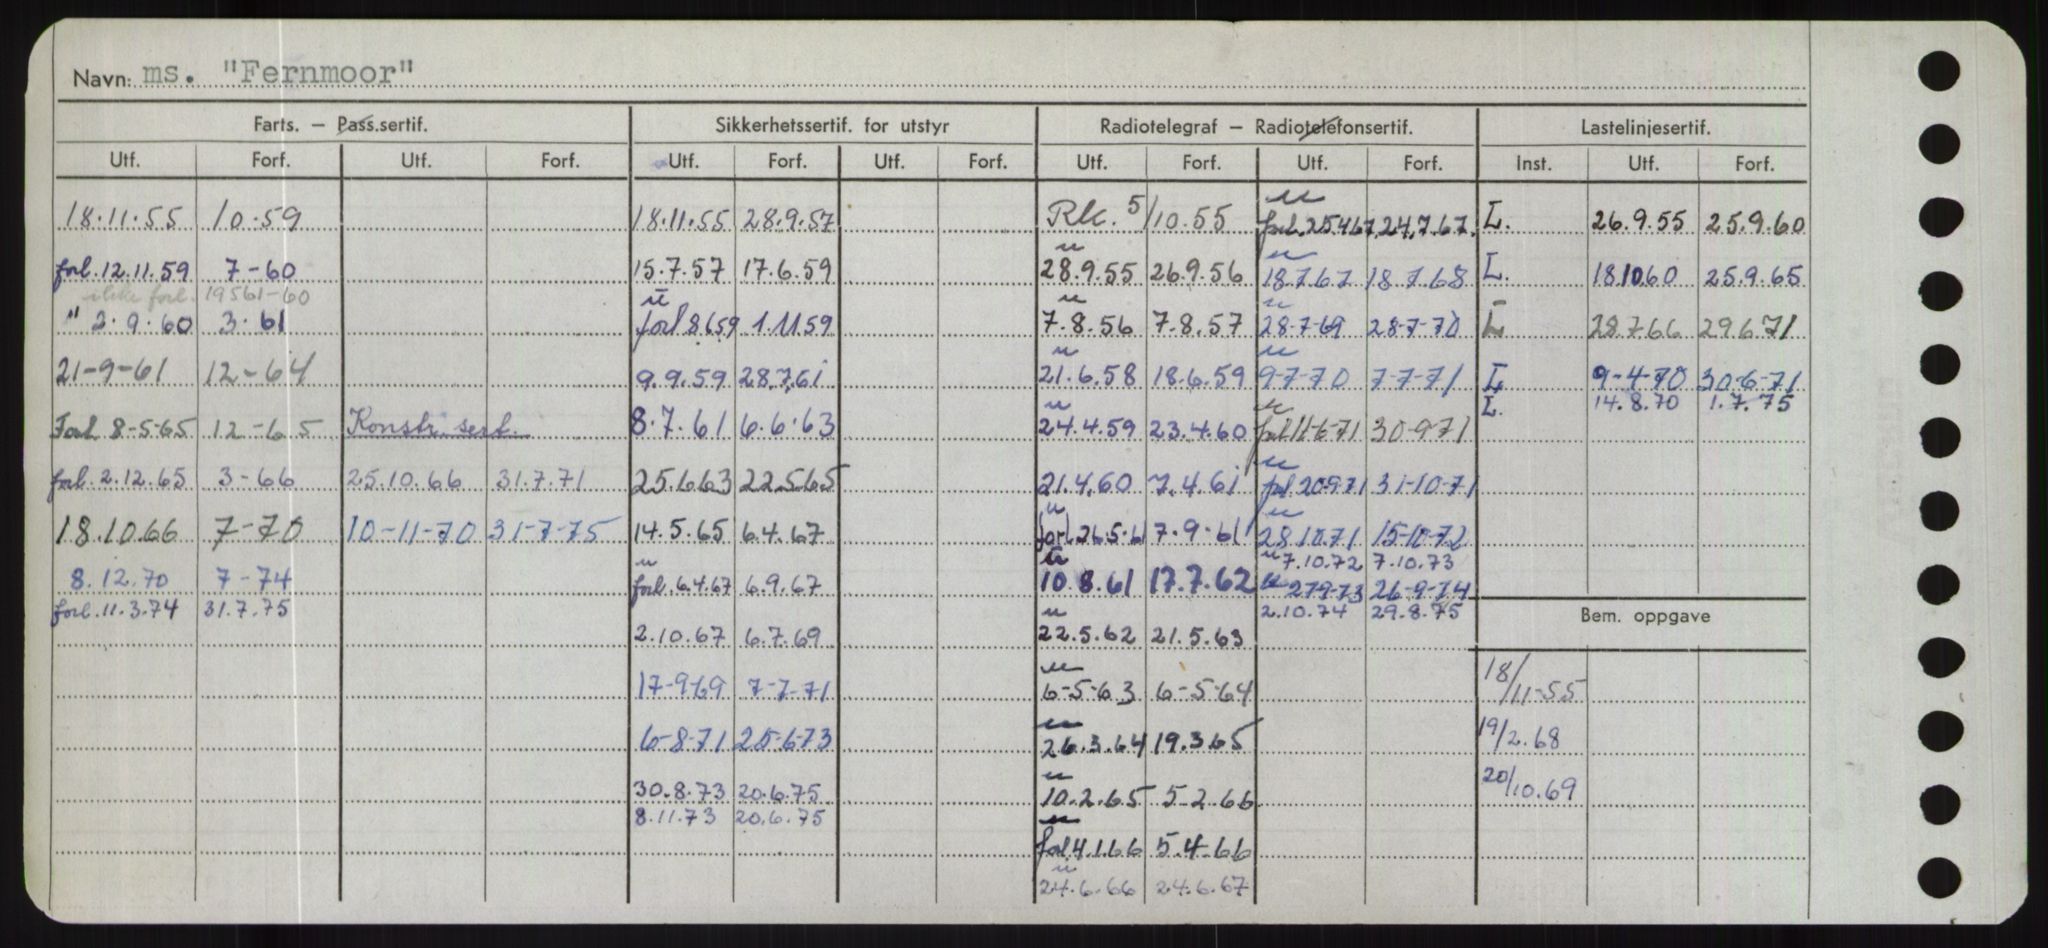 Navn: ms. "Fernmoor"
Farts. – Pass.sertif. Sikkerhetssertif. for utstyr Radiotelegraf – Radiotelefonsertif. Lastelinjesertif.
Utf. Forf. Utf. Forf. Utf. Forf. Utf. Forf. Utf. Forf. Utf. Forf. Inst. Utf. Forf.
18.11.55 10-59 18.11.55 28.9.57 Rk. 5/10.55 forl. 25467 24.7.67. L. 26.9.55 25.9.60
forl. 12.11.59 7-60 15.7.57 17.6.59 28.9.55 26.9.56 18.7.67 18.7.68 L. 18.10.60 25.9.65
ikke forl. 19561-60
" 2.9.60 3.61 forl 8659 1.11.59 7.8.56 7.8.57 28-7-69 28-7-70 L 28.7.66 29.6.71
21-9-61 12-64 9.9.59 28.7.61 21.6.58 18.6.59 9-7-70 7-7-71 L 9-4-70 30-6-71
L. 14.8.70 1.7.75
Forl. 8-5-65 12-65 Konstr. sert. 8.7.61 6.6.63 24.4.59 23.4.60 forl 11-6-71 30-9-71
forl. 2.12.65 3-66 25.10.66 31.7.71 25.6.63 22.5.65 21.4.60 7.4.61 forl 20-9-71 31-10-71
18.10.66 7-70 10-11-70 31-7-75 14.5.65 6.4.67 forl. 26.5.61 7.9.61 28.10.71 15-10-72
7.10.72 7.10.73
8.12.70 7-74 forl. 6.4.67 6.9.67 10.8.61 17.7.62 27-9-73 26-9-74
forl. 11.3.74 31.7.75 2.10.74 29.8.75
Bem. oppgave
2.10.67 6.7.69 22.5.62 21.5.63
17-9-69 7-7-71 6-5-63 6-5-64 18/11-55
6-8-71 25-6-73 26.3.64 19.3.65 19/2.68
30.8.73 20.6.75 10.2.65 5.2.66 20/10.69
8.11.73 20.6.75
forl 4.1.66 5.4.66
24.6.66 24.6.67